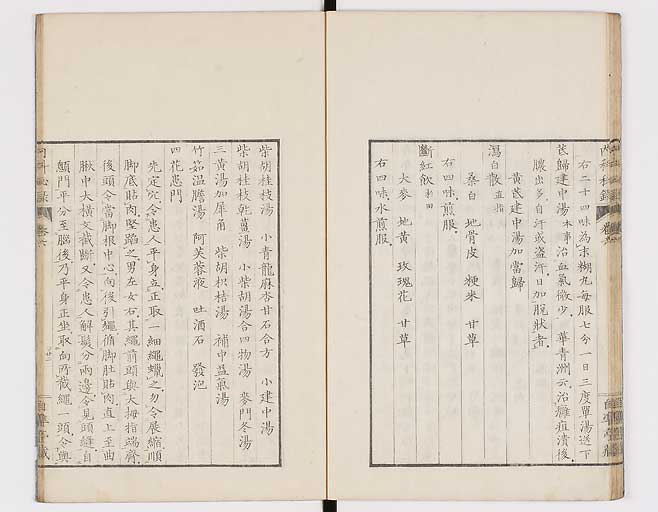 右二十四味為末糊丸每服七分一日三度單湯送下
芪歸建中湯 本事 治血氣微少 華青洲云治癰疽潰後
膿出多自汗或盜汗日加脫狀者
黃芪建中湯加當歸
瀉白散 直指
桑白 地骨皮 粳米 甘草
右四味煎服
斷紅飲
大麥 地黃 玫瑰花 甘草
右四味水煎服
柴胡桂枝湯 小青龍麻杏甘石合方 小建中湯
柴胡桂枝乾薑湯 小柴胡湯合四物湯 麥門冬湯
三黃湯加犀角 柴胡枳桔湯 補中益氣湯
竹茹溫膽湯 阿芙蓉液 吐酒石 發泡
四花患門
先定穴令患人平身立正取一細繩蠟之勿令展縮順
脚底貼肉堅踏之男左女右其繩前頭與大拇指端齊
後頭令當脚根中心向後引繩循脚肚貼肉直上至曲
䐐中大橫文截斷又令患人解髮分兩邊令見頭縫自
顖門平分至腦後乃平身正坐取向所截繩一頭令與
內科秘錄 卷六
自準亭藏